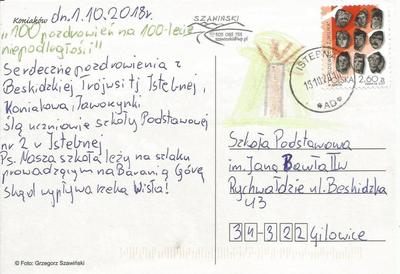 Koniaków dn. 1.10.2018r.
"100 pozdrowień na 100-lecie
niepodległości"
SZAWIŃSKI
Serdeczne pozdrowienia z
Beskidzkiej Trójwsi tj Istebnej,
Koniakowa, Jaworzynki
ślą uczniowie szkoły Podstawowej
nr 2 w Istebnej
Ps. Nasza szkoła leży na szlaku
prowadzącym na Baranią Górę
skąd wypływa rzeka Wisła!
ISTEBNA
POLSKA 2,60 zł
*AD*
Szkoła Podstawowa
im. Jana Pawła II w
Rychwałdzie ul. Beskidzka
43
34-322 Gilowice
© Foto: Grzegorz Szawiński